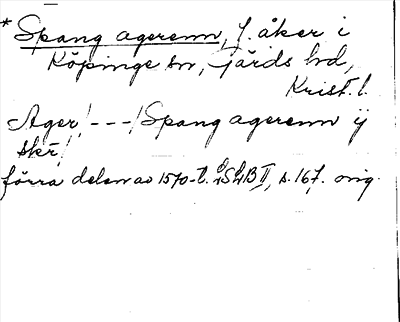 * Spang agerenn, f. åker i
Köpinge sn, järds hd,
Krist. l.
Ager /---/ Spang agerenn ÿ
skr/
förra delen av 1570-t. LSLB II, s. 167. orig.